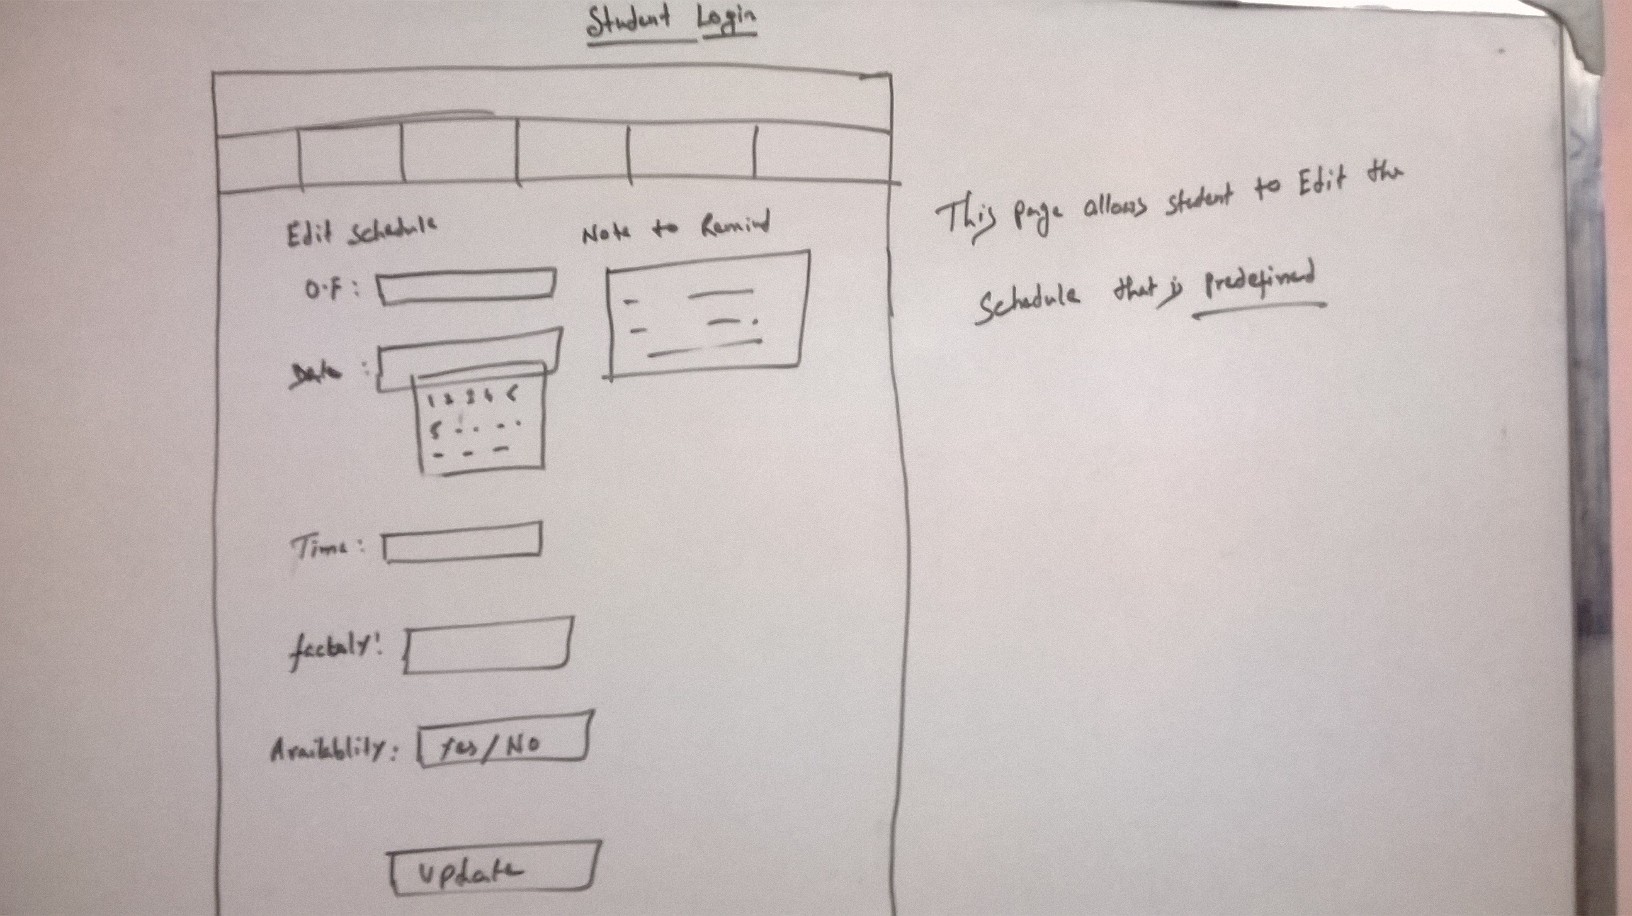 Student Login
Edit Schedule
O.F:
Date:
1 2 3 4 5
Time:
facbuly:
Availablity: Yes/No
Update
Note to Remind
This page allows student to Edit the
Schedule that is predefined